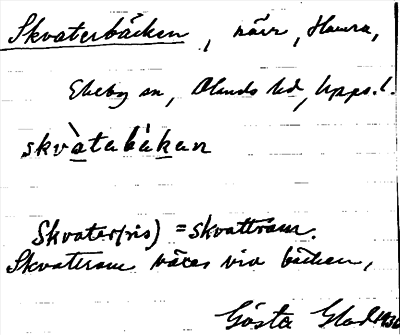 Skvaterbäcken, nära, Hamra,
Ekeby sn, Olands hd, Upps. l.
skvàtabákan
Skvater(ris) = skvattram.
Skvateram växer vid bäcken,
Gösta